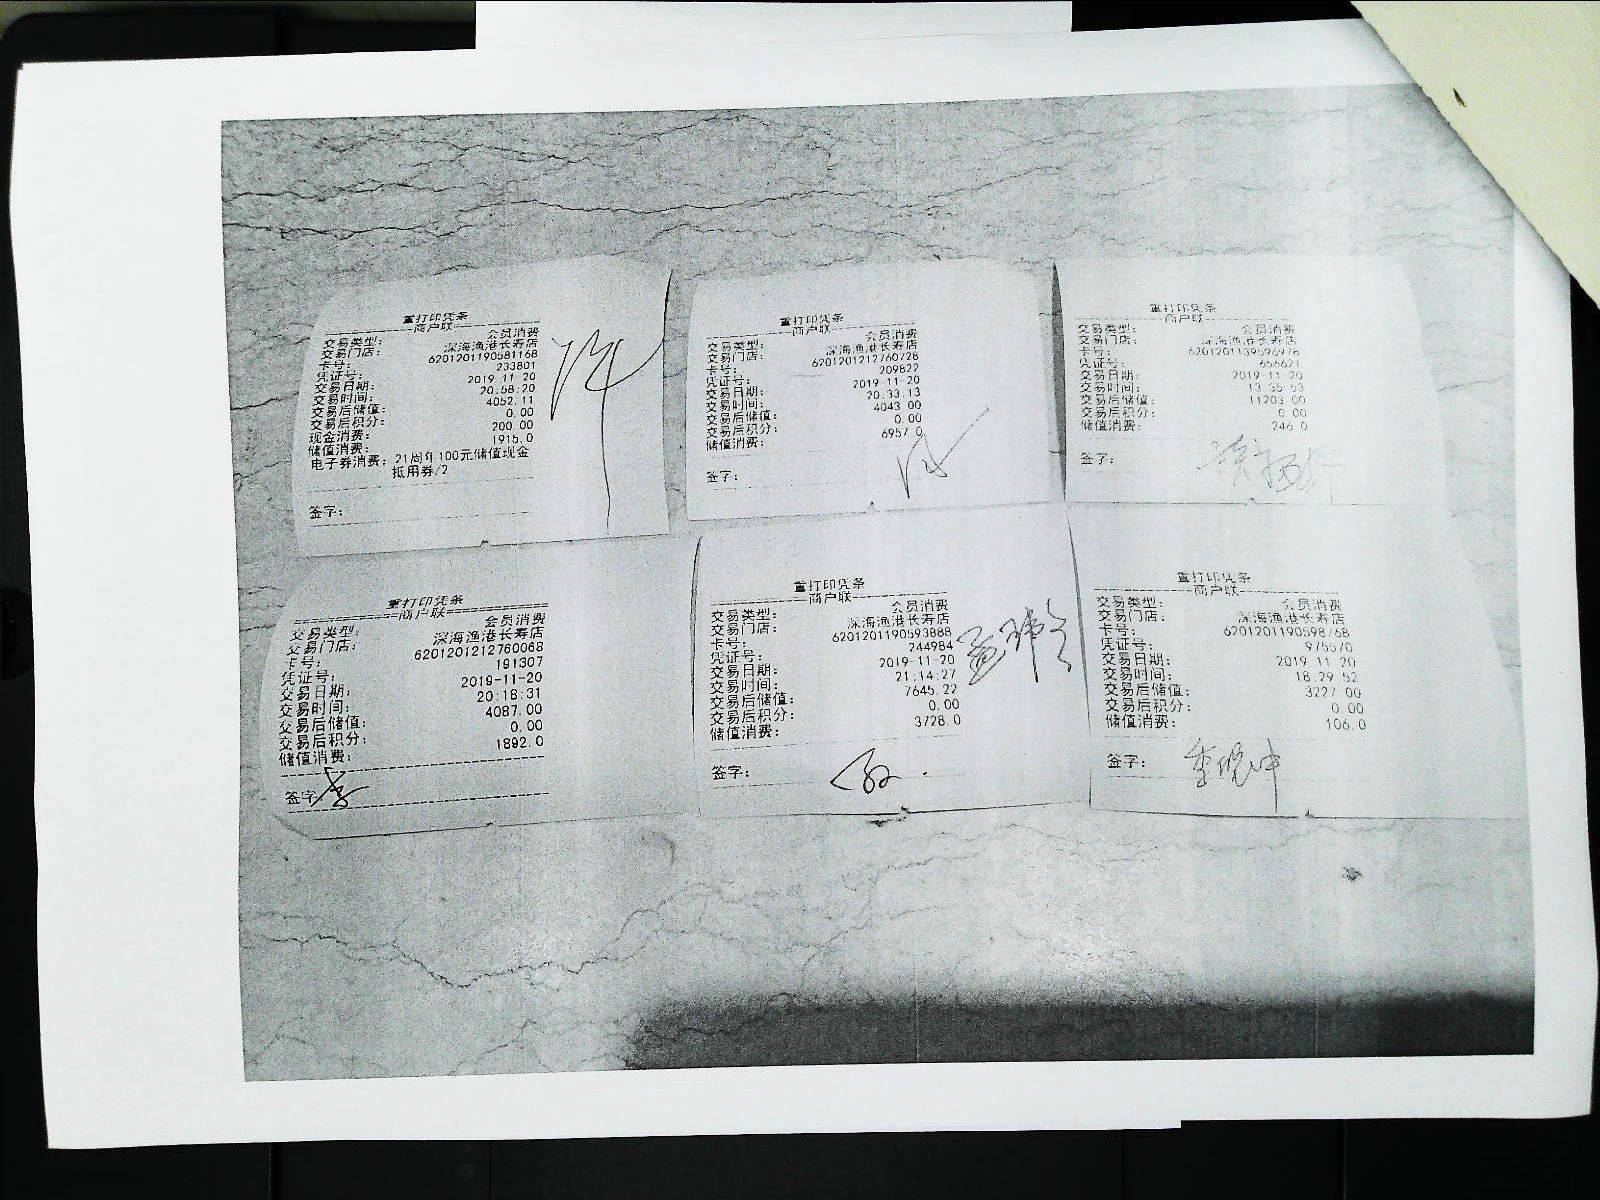 重打印凭条
商户联
交易类型: 会员消费
交易门店: 深海渔港长寿店
卡号: 6201201190581168
凭证号: 233801
交易日期: 2019-11-20
交易时间: 20:58:20
交易后储值: 4052.11
交易后积分: 0.00
现金消费: 200.00
储值消费: 1915.0
电子券消费: 21周年100元储值现金
抵用券/2
签字:
重打印凭条
商户联
交易类型: 会员消费
交易门店: 深海渔港长寿店
卡号: 6201201212760728
凭证号: 209822
交易日期: 2019-11-20
交易时间: 20:33:13
交易后储值: 4043.00
交易后积分: 0.00
储值消费: 6957.0
签字:
重打印凭条
商户联
交易类型: 会员消费
交易门店: 深海渔港长寿店
卡号: 6201201139596978
凭证号: 656621
交易日期: 2019-11-20
交易时间: 13:35:53
交易后储值: 11203.00
交易后积分: 0.00
储值消费: 246.0
签字:
重打印凭条
商户联
交易类型: 会员消费
交易门店: 深海渔港长寿店
卡号: 6201201212760068
凭证号: 191307
交易日期: 2019-11-20
交易时间: 20:18:31
交易后储值: 4087.00
交易后积分: 0.00
储值消费: 1892.0
签字:
重打印凭条
商户联
交易类型: 会员消费
交易门店: 深海渔港长寿店
卡号: 6201201190593888
凭证号: 244984
交易日期: 2019-11-20
交易时间: 21:14:27
交易后储值: 7645.22
交易后积分: 0.00
储值消费: 3728.0
签字:
重打印凭条
商户联
交易类型: 会员消费
交易门店: 深海渔港长寿店
卡号: 6201201190598768
凭证号: 975570
交易日期: 2019-11-20
交易时间: 18:29:52
交易后储值: 3227.00
交易后积分: 0.00
储值消费: 106.0
签字: